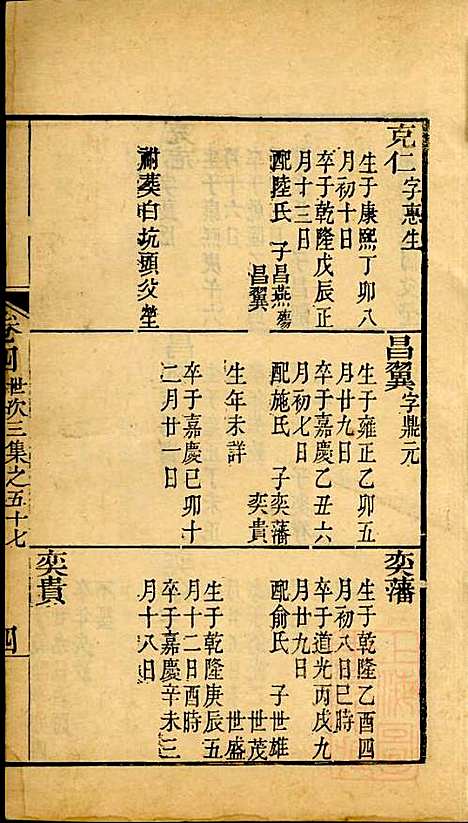 克仁字惠生
生于康熙丁卯八
月初十日
卒于乾隆戊辰正
月十三日
配陸氏 子昌燕殤
昌翼
祔葵白坑頭父塋
昌翼字鼎元
生于雍正乙卯五
月廿九日
卒于嘉慶乙丑六
月初七日
配施氏 子奕藩
奕貴
生年未詳
卒于嘉慶己卯十
二月廿一日
奕藩
生于乾隆乙酉四
月初八日巳時
卒于道光丙戌九
月廿九日
配俞氏 子世雄
世茂
世盛
生于乾隆庚辰五
月十二日酉時
卒于嘉慶辛未三
月十八日
奕貴
卷四 世次三集之五十七
四